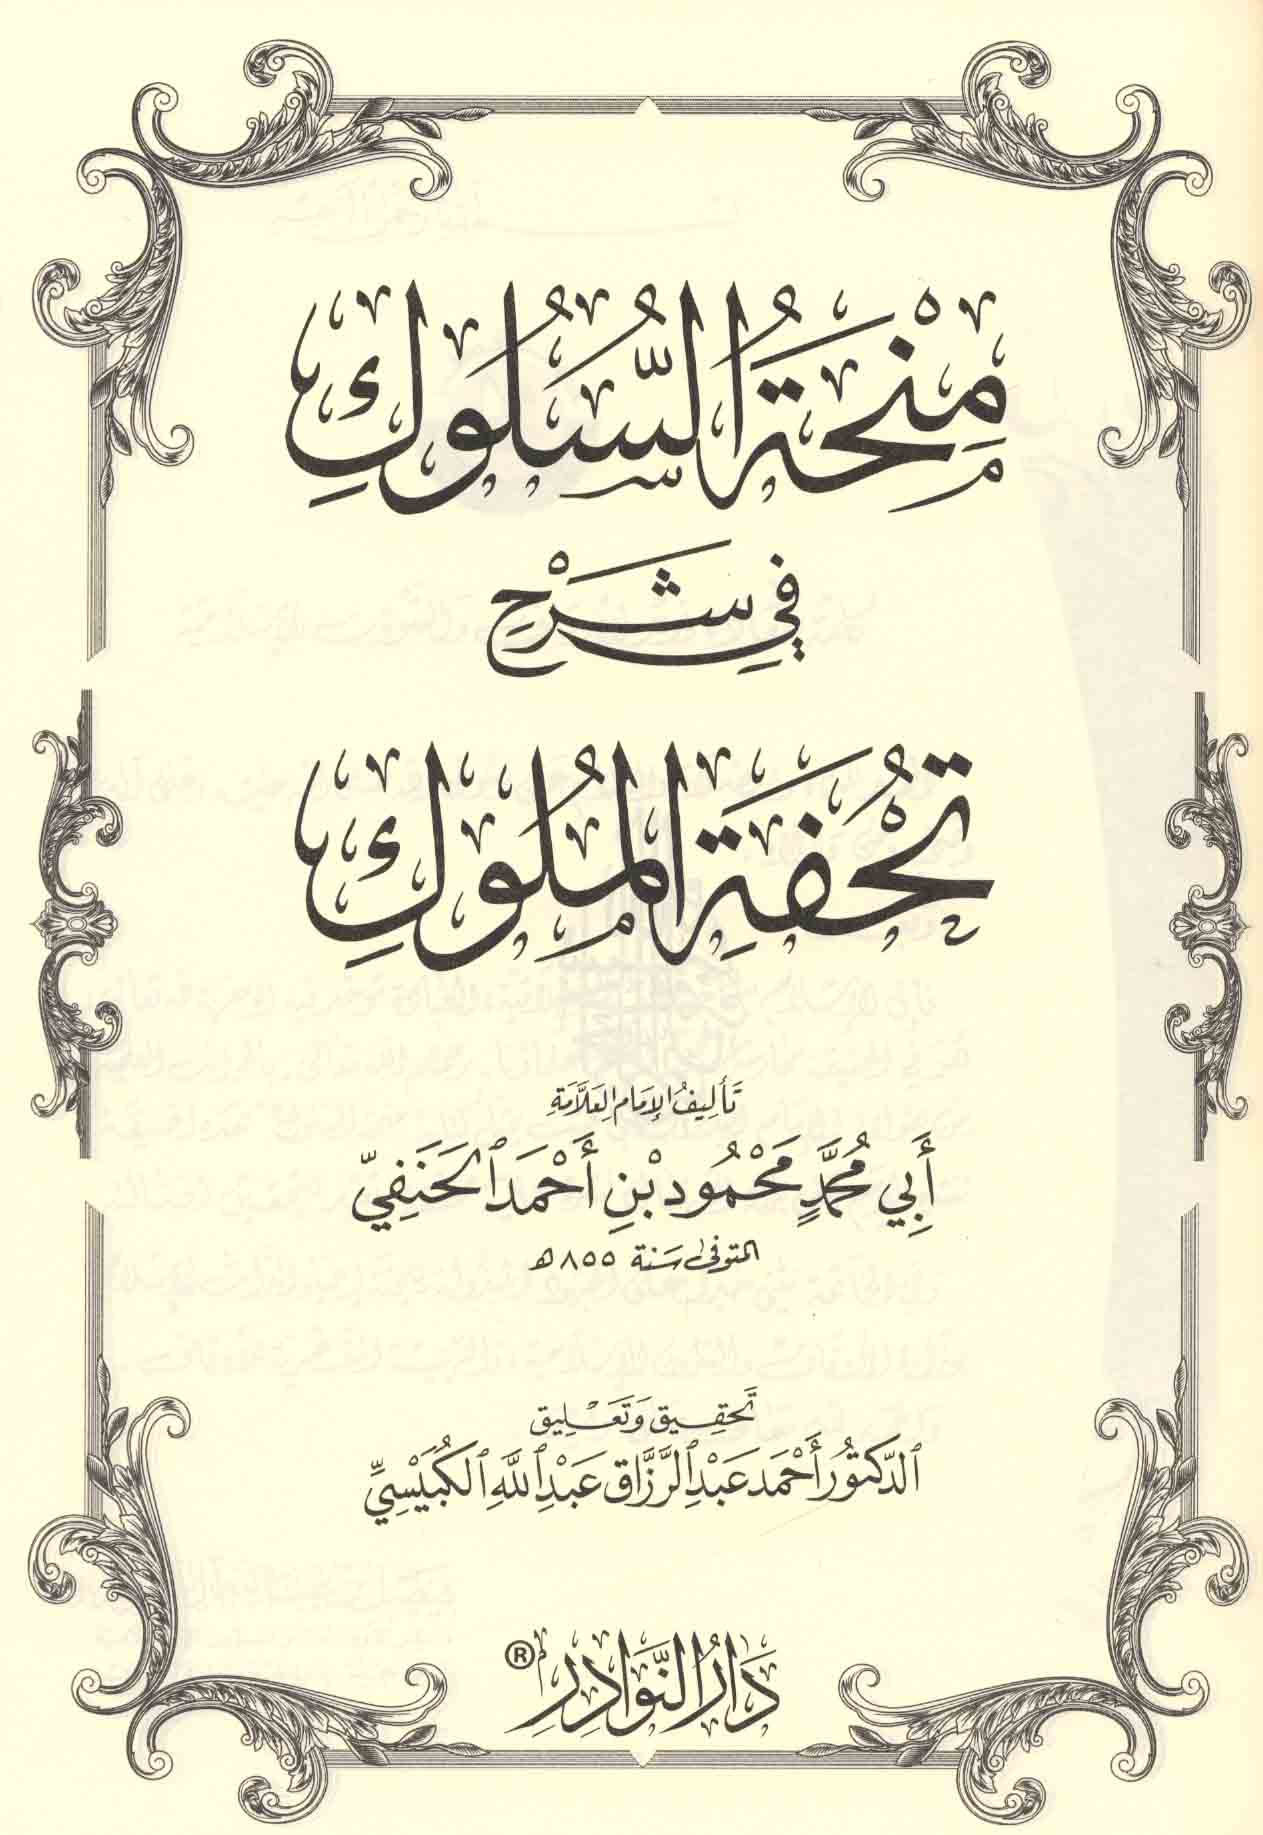 مِنْحَةُ السُّلُوكِ
فِي شَرْحِ
تُحْفَةِ المُلُوكِ
تَأليفُ الإمَام العَلَّامَةِ
أَبِي مُحَمَّدٍ مَحْمُود بْنِ أَحْمَدَ الحَنَفِيّ
المتوفى سَنة ٨٥٥ هـ
تَحقِيق وَتَعْليق
الدّكتُور أَحْمَد عَبْد الرَّزَّاق عَبْد اللَّهِ الكُبَيْسِيِّ
دَارُ النَّوَادِرِ ®